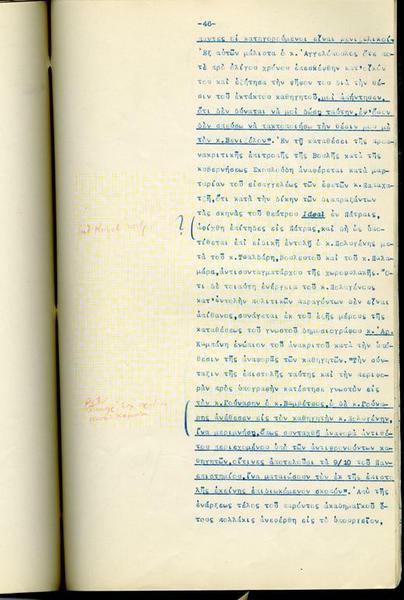 -46-
πάντες οἱ κατηγορούμενοι εἶναι βενιζελικοί.
Ἐξ αὐτῶν μάλιστα ὁ κ. Ἀγγελόπουλος ὅτε πο-
τὲ πρὸ ὀλίγου χρόνου ἐπεσκέφθην κατ'οἶκόν
του καὶ ἐζήτησα τὴν ψῆφον του διὰ τὴν θέ-
σιν τοῦ ἐκτάκτου καθηγητοῦ, μοὶ ἀπήντησεν,
ὅτι δὲν δύναται νὰ μοὶ δώσῃ ταύτην, ἐν ὅσῳ
δὲν σπεύσω νὰ τακτοποιήσω τὴν θέσιν μου μὲ
τὸν κ. Βενιζέλον". Ἐν τῇ καταθέσει τῆς προα-
νακριτικῆς ἐπιτροπῆς τῆς Βουλῆς κατὰ τῆς
κυβερνήσεως Σκουλούδη ἀναφέρεται κατὰ μαρ-
τυρίαν τοῦ εἰσαγγελέως τῶν ἐφετῶν κ. Παπαχα-
τζῆ, ὅτι κατὰ τὴν δίκην τῶν διαπραξάντων
τὰς σκηνὰς τοῦ θεάτρου Ideal ἐν Πάτραις,
ἀφίχθη ἐπίτηδες εἰς Πάτρας, καὶ δὴ ὡς ὑπο-
τίθεται ἐπὶ εἰδικῇ ἐντολῇ ὁ κ. Πολυγένης με-
τὰ τοῦ κ. Τσαλδάρη, βουλευτοῦ καὶ τοῦ κ. Παλα-
μάρα, ἀντισυνταγματάρχου τῆς χωροφυλακῆς. Ὅ-
τι δὲ τοιαύτη ἐνέργεια τοῦ κ. Πολυγένους
κατ'ἐντολὴν πολιτικῶν παραγόντων δὲν εἶναι
ἀπίθανος, συνάγεται ἐκ τοῦ ἑξῆς μέρους τῆς
καταθέσεως τοῦ γνωστοῦ δημοσιογράφου κ. Ἀρ.
Κυμπάνη ἐνώπιον τοῦ ἀνακριτοῦ κατὰ τὴν ὑπό-
θεσιν τῆς ἀναφορᾶς τῶν καθηγητῶν. "Τὴν σύν-
ταξιν τῆς ἐπιστολῆς ταύτης καὶ τὴν περιφο-
ρὰν πρὸς ὑπογραφὴν κατέστησε γνωστὸν εἰς
τὸν κ. Γούναρην ὁ κ. Βαμβέτσος, ὁ δὲ κ. Γούνα-
ρης ἀνέθεσεν εἰς τὸν καθηγητὴν κ. Πολυγένην,
ἵνα μεριμνήσῃ, ὅπως συνταχθῇ ἀναφορὰ ἀντιθέ-
του περιεχομένου ὑπὸ τῶν ἀντιφρονούντων κα-
θηγητῶν, οἵτινες ἀποτελοῦσι τὰ 9/10 τοῦ Παν-
επιστημίου, ἵνα ματαιώσουν τὸν ἐκ τῆς ἐπιστο-
λῆς ἐκείνης ἐπιδιωκόμενον σκοπόν". Ἀπὸ τῆς
ἐνάρξεως τέλος τοῦ παρόντος ἀκαδημαϊκοῦ ἔ-
τους πολλάκις ἀνεφέρθη εἰς τὸ ὑπουργεῖον,
?